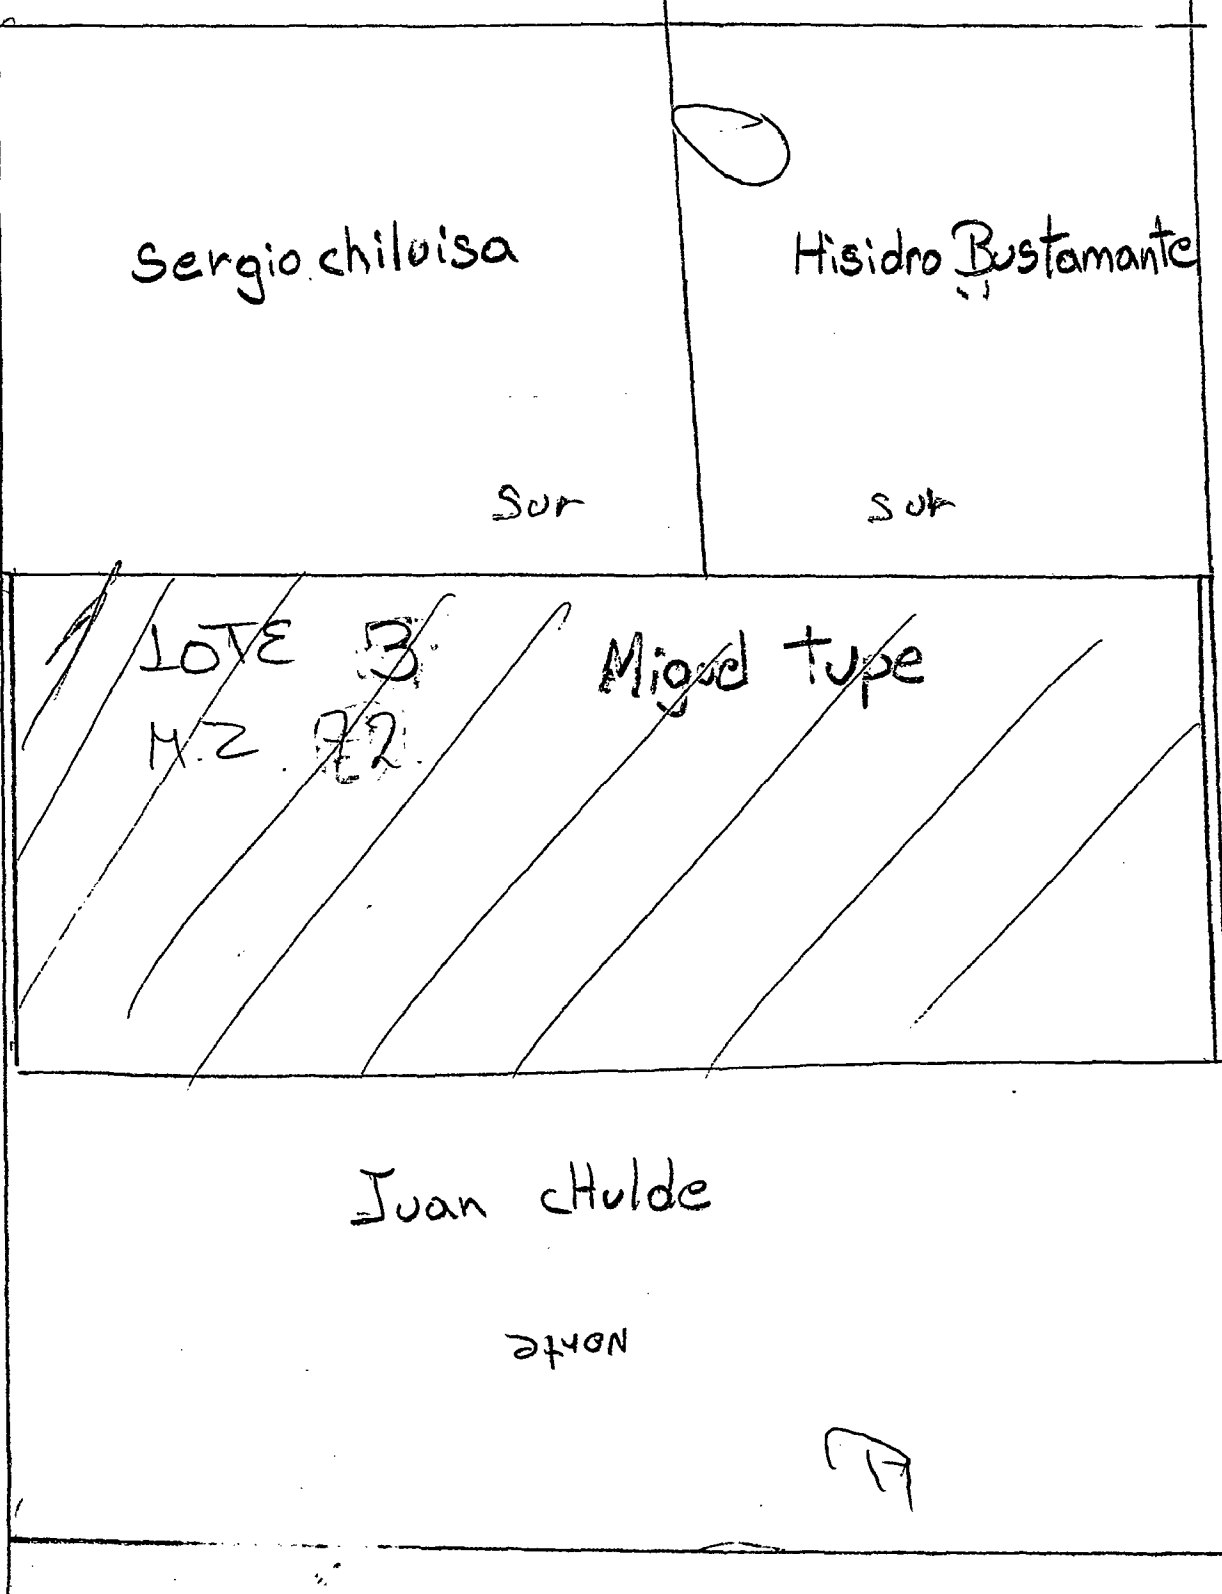 Sergio chiluisa
Hisidro Bustamante
Sur
Sur
LOTE 3
Miguel Tupe
M.Z
Juan cHulde
Norte